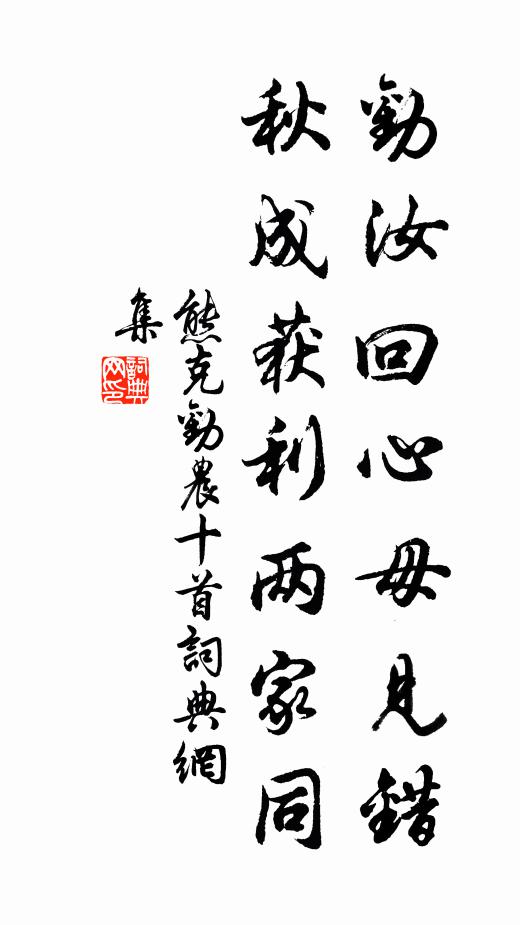 勸汝回心毋見錯
秋成获利两家同
熊克勸農十首詞典網
集
詞典網印